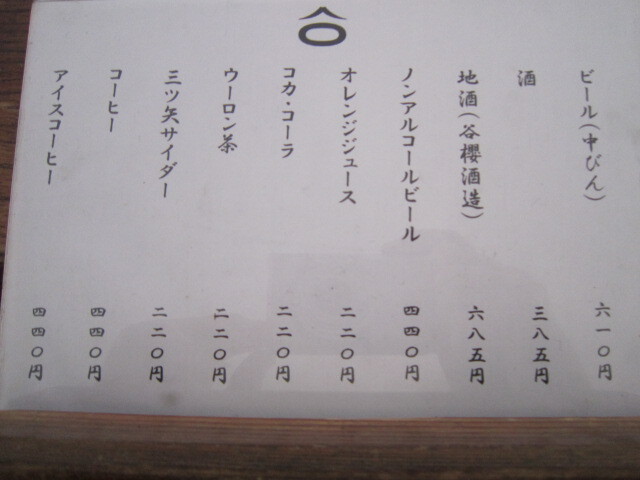 ビール(中びん) 六一〇円
酒 三八五円
地酒(谷櫻酒造) 六八五円
ノンアルコールビール 四四〇円
オレンジジュース 二二〇円
コカ・コーラ 二二〇円
ウーロン茶 二二〇円
三ツ矢サイダー 二二〇円
コーヒー 四四〇円
アイスコーヒー 四四〇円